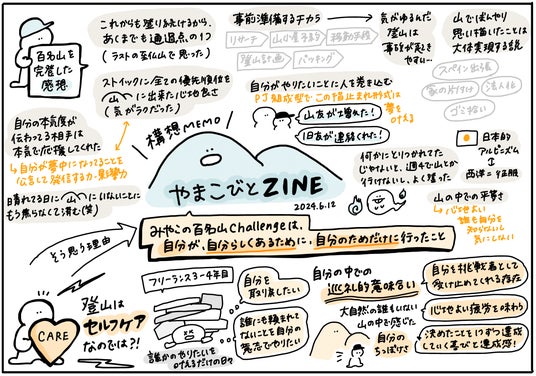 百名山を
完登した
感想
これからも登り続けるから、
あくまでも通過点の1つ
(ラストの至仏山で思った)
ストイックに全ての優先順位を
山に出来た心地良さ
(気がラクだった)
自分の本気度が
伝わってる相手は
本気で応援してくれた
→自分が夢中になってることを
公言して発信する力・影響力
晴れてる日に山にいないことに
もう焦らなくて済む(笑)
そう思う理由
事前準備するチカラ
リサーチ
山小屋予約
移動手段
登山計画
パッキング
気がゆるんだ
登山は
事故が起き
やすい…
山でぼんやり
思い描いたことは
大体実現する説
スペイン出張
家の片付け
法人化
ゴミ拾い
自分がやりたいことに人を巻き込む
PJ結成型でこの指とまれ形式は
夢を
叶える
山友が増えた!
旧友が連絡くれた!
構想MEMO
やまこびとZINE
2024.6.12
何かにとりつかれてた
じゃないと、週末で山とか
行けないし、よく登った
日本的
アルピニズム
西洋=征服
山の中での平等さ
→心地よい
誰も自分を
知らないし
気にしない
みやこの百名山Challengeは、
自分が、自分らしくあるために、自分のためだけに行ったこと
登山は
セルフケア
なのでは?!
CARE
フリーランス3-4年目
誰かのやりたいを
叶えるだけの日々
自分を
取り戻したい
誰にも頼まれて
ないことを自分の
意志でやりたい
自分の中での
巡礼的意味合い
大自然の誰もいない
山の中で感じた
自分の
ちっぽけさ
自分を挑戦者として
受け止めてくれる存在
心地よい疲労を味わう
決めたことを1つずつ達成
していく喜びと達成感!